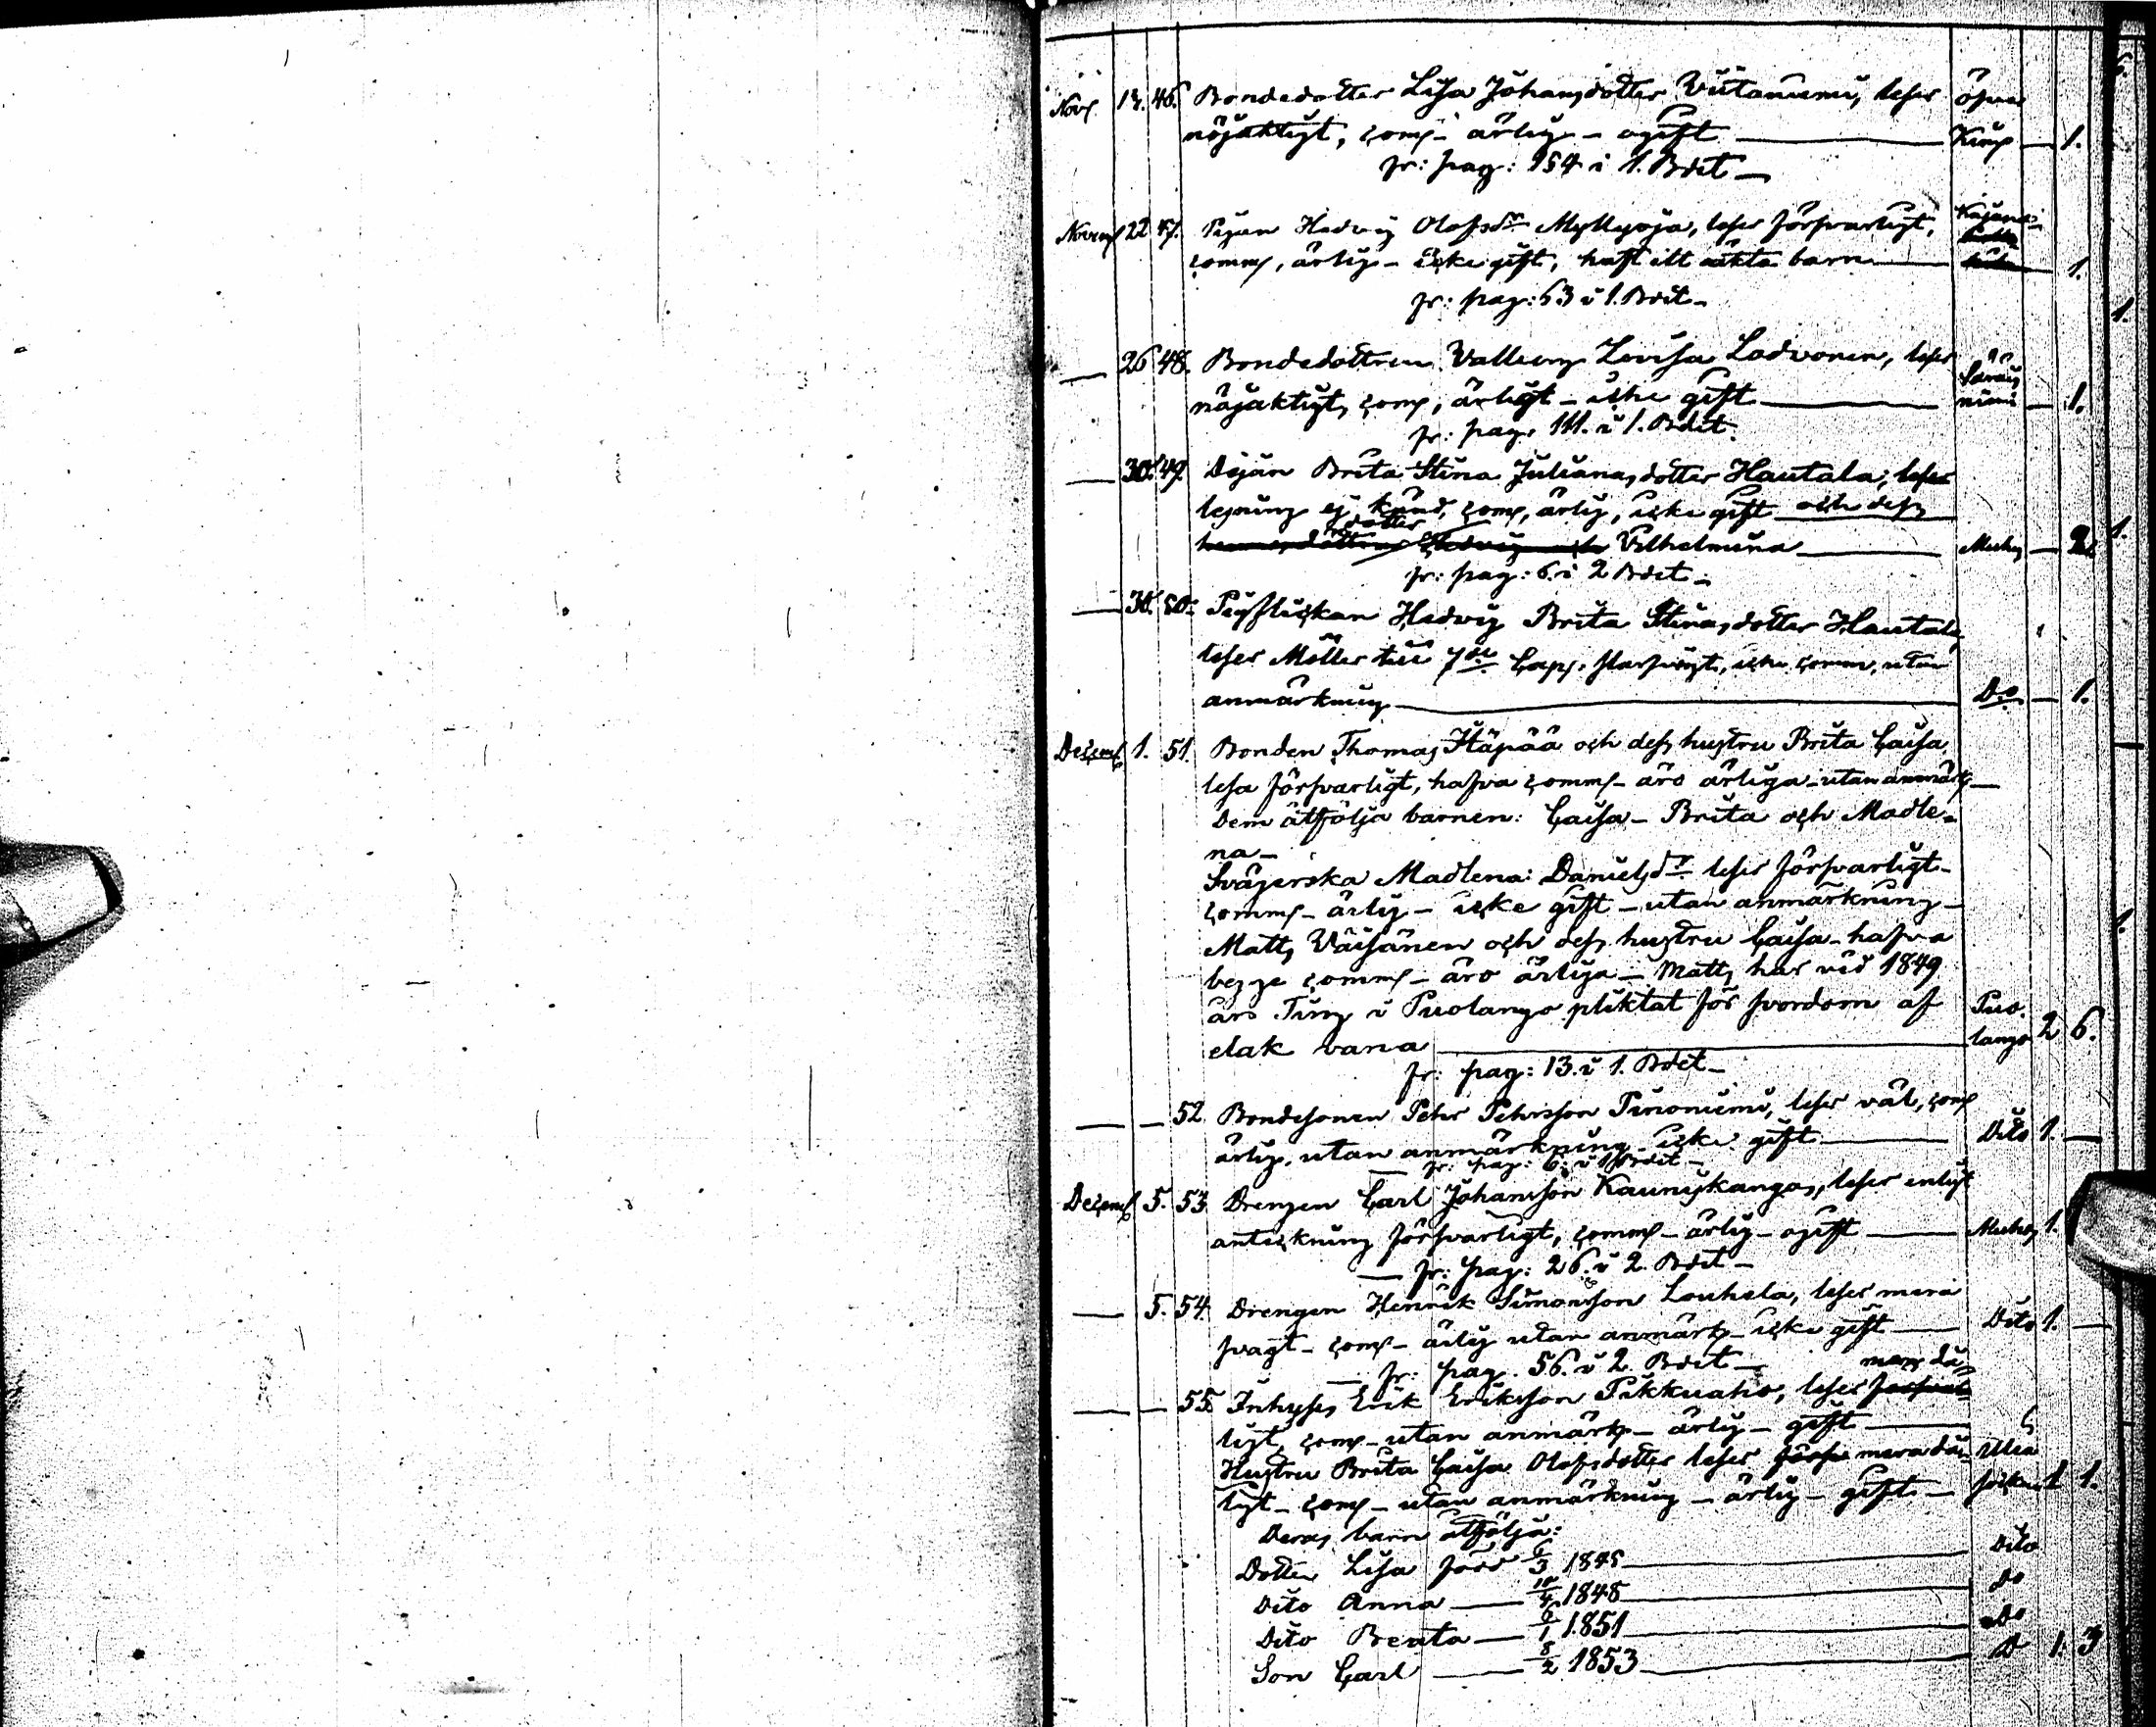 Nov 13. 46. Bondedotter Lisa Johansdotter Viitaniemi, läser öfver
nöjaktigt, com. ärlig - ogift Kimg 1.
fr: pag: 154 i 1. Bdet
Novem 22 47. Pigan Hedvig Olofsdr Myllyoja, läser försvarligt, Kajana
comm, ärlig - icke gift, haft ett oäkta barn 1.
fr: pag: 63 i 1. Bdet
26 48. Bondedottren Valborg Lovisa Ladvonen, läser Säräis
nöjaktigt, com, ärligt - icke gift niemi 1.
fr: pag. 111. i 1. Bdet.
30. 49. Pigan Brita Stina Julianasdotter Hautala; läser
läsning ej känd, com, ärlig, icke gift och dess
dotter
Vilhelmina Muhos 2.
fr: pag: 6. i 2 Bdet
30. 50. Pigflickan Hedvig Brita Stinasdotter Hautala
läser Möller till 7de Cap. icke comm. utan
anmärkning Do 1.
Decemb 1. 51. Bonden Thomas Häpää och dess hustru Brita Caisa
läsa försvarligt, hafva comm - äro ärliga - utan anmärk
Dem åtfölja barnen: Caisa - Brita och Madle-
na -
Svägerska Madlena Danielsdr läser försvarligt -
comm - ärlig - icke gift - utan anmärkning -
Matts Väisänen och dess hustru Caisa - hafva
begge comm - äro ärliga - Matts har vid 1849
års Ting i Puolango pliktat för svordom af Puo.
elak vana lango 2 6.
fr: pag: 13. i 1. Bdet
52. Bondesonen Pehr Pehrsson Piironiemi, läser väl, com
ärlig, utan anmärkning icke gift Dito 1.
fr: pag: 6. i 1 Bdet
Decemb 5. 53. Drengen Carl Johansson Kauniskangas, läser enligt
anteckning försvarligt, comm - ärlig - ogift Muhos 1.
fr: pag: 26. i 2. Bdet
5. 54. Drengen Henrik Simonsson Louhela, läser mera
svagt - com - ärlig utan anmärk - icke gift Dito 1.
fr: pag. 56. i 2 Bdet mera då
55. Inhyses Erik Eriksson Pikkuaho, läser
ligt, com - utan anmärk - ärlig - gift
Hustru Brita Caisa Olofsdotter läser mera då Uleå
ligt - com - utan anmärkning - ärlig - gift - socken 1 1.
Deras barn åtfölja:
Dotter Lisa född 6/3 1845 Dito
Dito Anna 10/4 1848 Do
Dito Beata 6/1 1851 Do
Son Carl 8/2 1853 D 1. 3